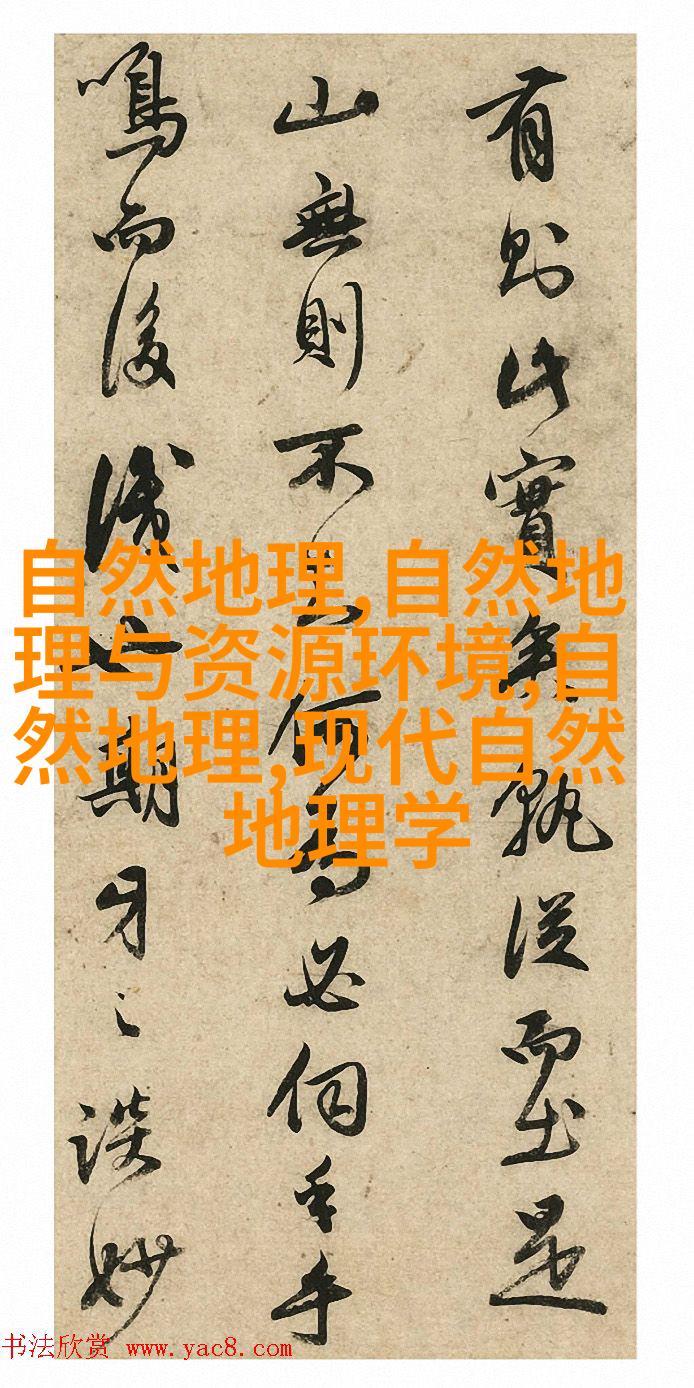 有則此實孰從而出是
山無則不何必手
鳴而後也期牙之談妙
自然地理,自然地
理与资源环境,自
然地理,现代自然
地理学
书法欣赏 www.yac8.com